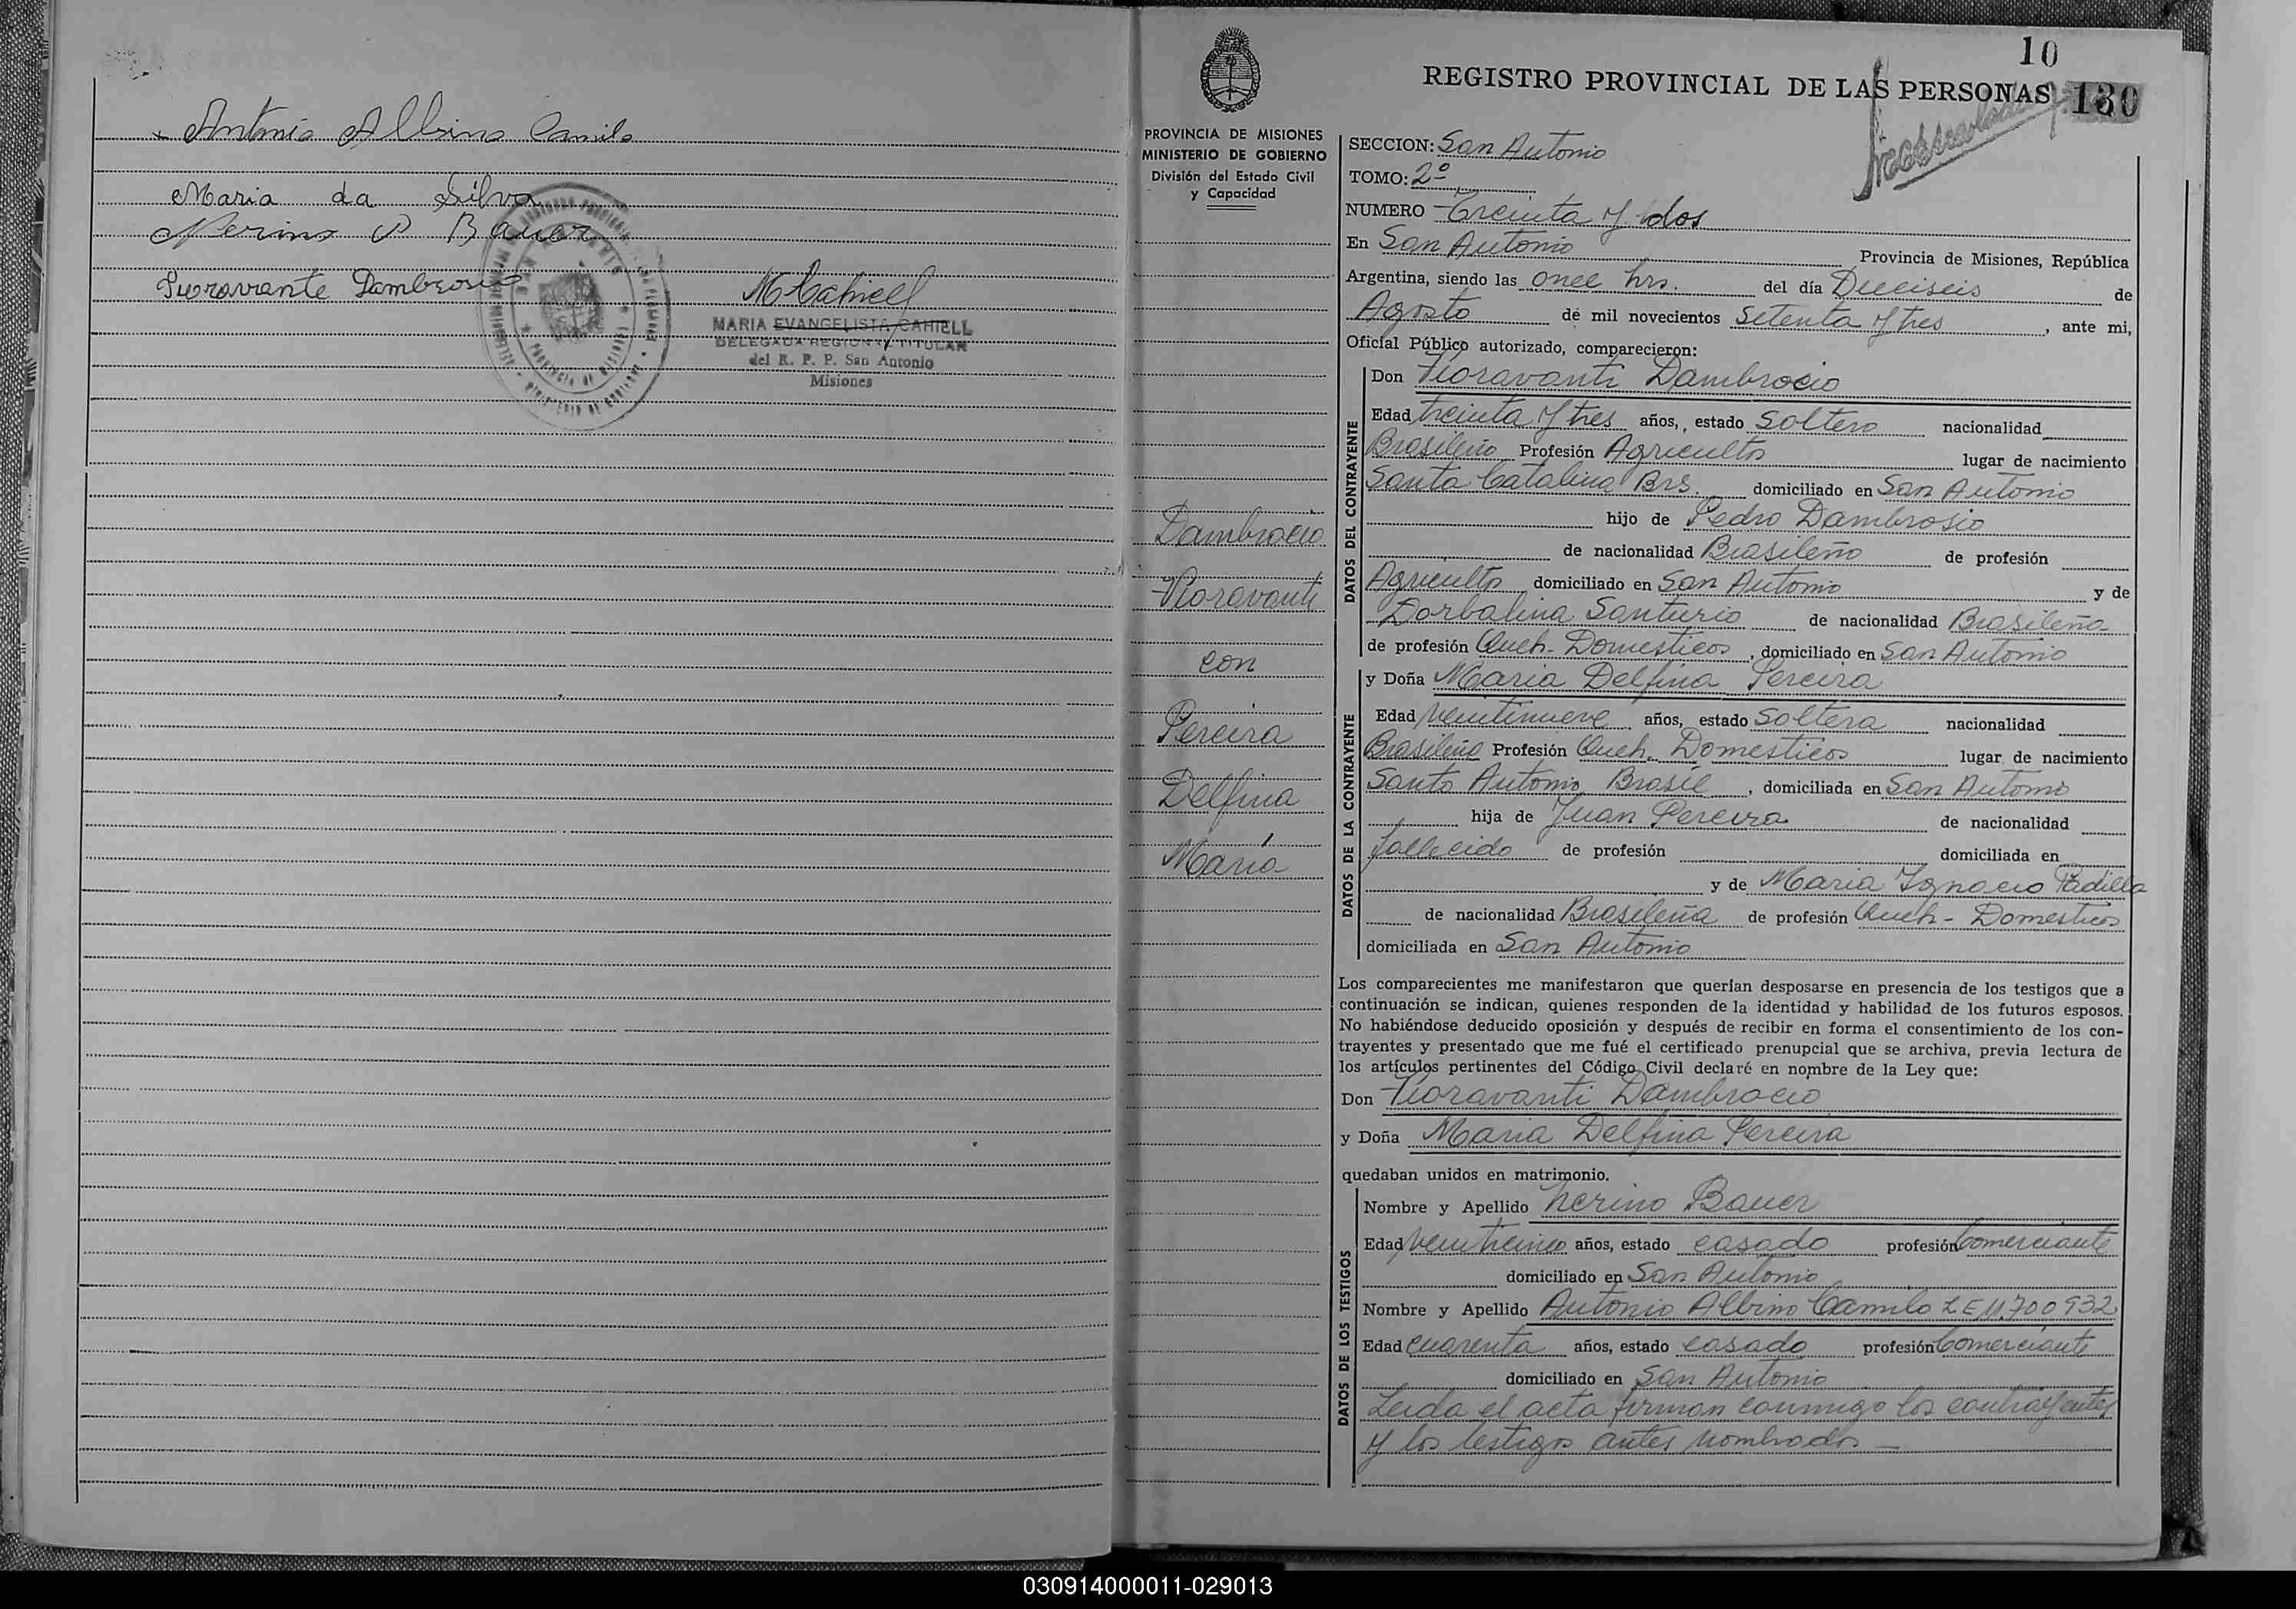 Antonio Albino Camilo
Maria da Silva
Nerino P Bauer
Fioravante Dambrosio
MCahiell
MARIA EVANGELISTA CAHIELL
DELEGADA REGIONAL TITULAR
del R. P. P. San Antonio
Misiones
10
REGISTRO PROVINCIAL DE LAS PERSONAS
130
PROVINCIA DE MISIONES
MINISTERIO DE GOBIERNO
División del Estado Civil
y Capacidad
Dambrocio
Fioravanti
con
Pereira
Delfina
María
SECCION: San Antonio
TOMO: 2º
NUMERO Treinta y dos
En San Antonio Provincia de Misiones, República
Argentina, siendo las once hrs. del día Dieciseis de
Agosto de mil novecientos Setenta y tres, ante mi,
Oficial Público autorizado, comparecieron:
DATOS DEL CONTRAYENTE
Don Fioravanti Dambrocio
Edad treinta y tres años,, estado Soltero nacionalidad
Brasileño Profesión Agricultor lugar de nacimiento
Santa Catalina Brs. domiciliado en San Antonio
hijo de Pedro Dambrosio
de nacionalidad Brasileño de profesión
Agricultor domiciliado en San Antonio y de
Dorbalina Santurio de nacionalidad Brasileña
de profesión Queh. Domesticos, domiciliado en San Antonio
DATOS DE LA CONTRAYENTE
y Doña Maria Delfina Pereira
Edad Veintinueve años, estado Soltera nacionalidad
Brasileña Profesión Queh. Domesticos lugar de nacimiento
Santo Antonio Brasil, domiciliada en San Antonio
hija de Juan Pereira de nacionalidad
fallecido de profesión domiciliada en
y de Maria Ignacio Padilla
de nacionalidad Brasileña de profesión Queh - Domesticos
domiciliada en San Antonio
Los comparecientes me manifestaron que querían desposarse en presencia de los testigos que a
continuación se indican, quienes responden de la identidad y habilidad de los futuros esposos.
No habiéndose deducido oposición y después de recibir en forma el consentimiento de los con-
trayentes y presentado que me fué el certificado prenupcial que se archiva, previa lectura de
los artículos pertinentes del Código Civil declaré en nombre de la Ley que:
Don Fioravanti Dambrocio
y Doña Maria Delfina Pereira
quedaban unidos en matrimonio.
DATOS DE LOS TESTIGOS
Nombre y Apellido Nerino Bauer
Edad Veinticinco años, estado casado profesión Comerciante
domiciliado en San Antonio
Nombre y Apellido Antonio Albino Camilo LE 11.700932
Edad cuarenta años, estado casado profesión Comerciante
domiciliado en San Antonio
Leida el acta firman conmigo los contrayentes
y los testigos antes nombrados
030914000011-029013